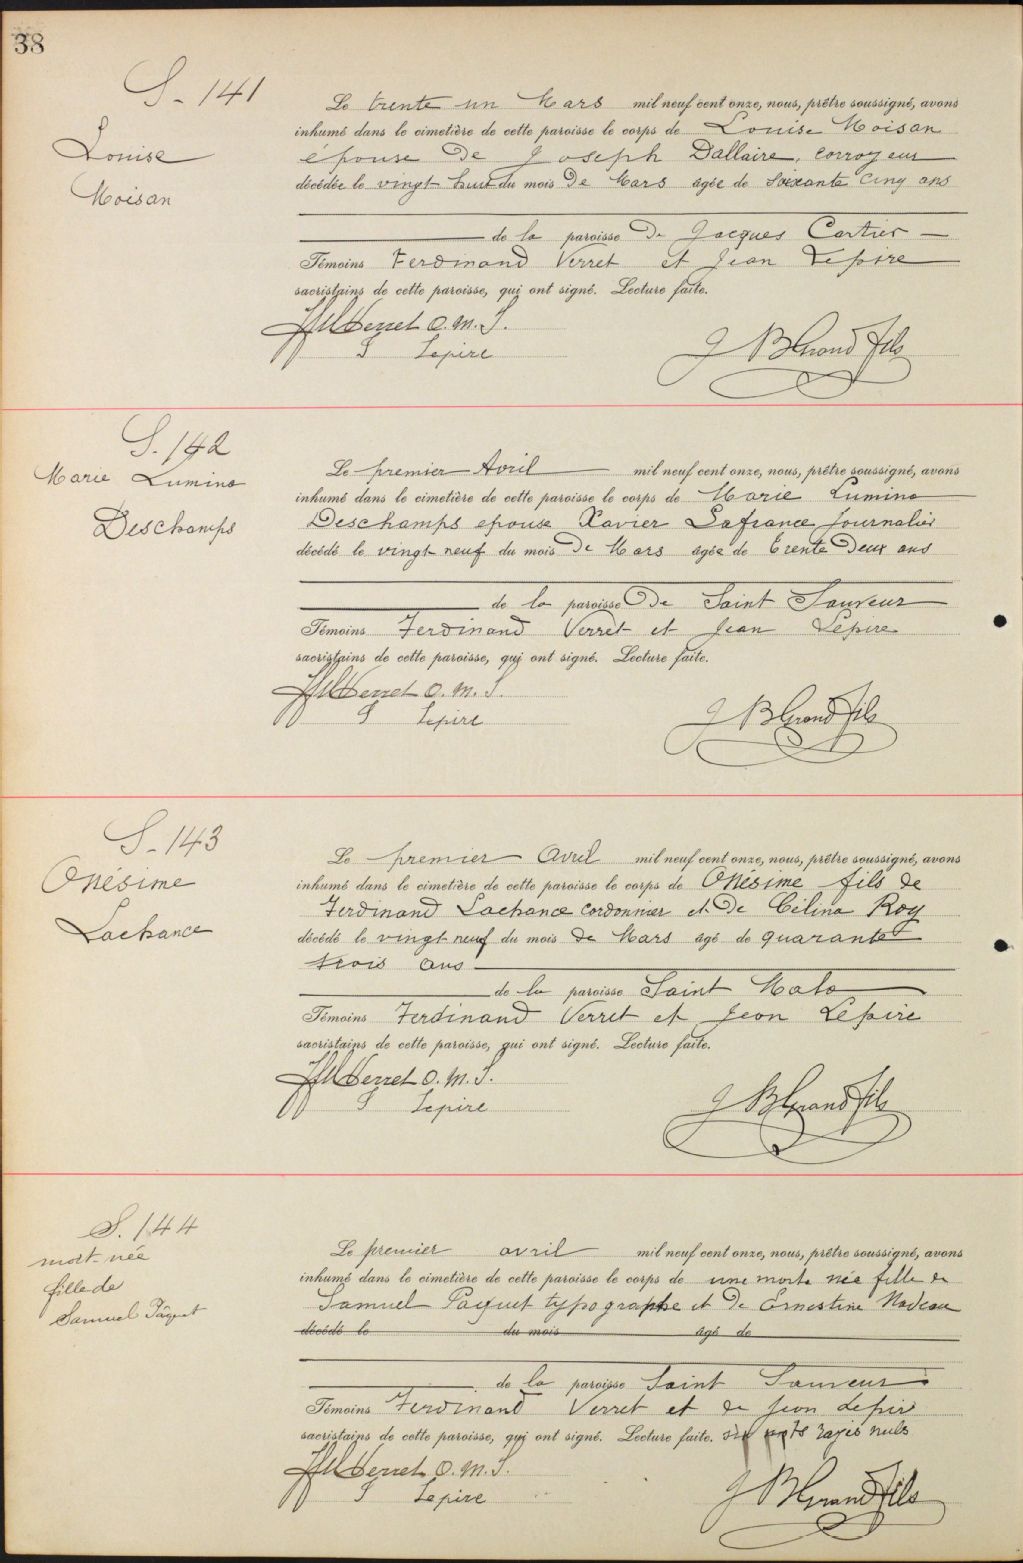 38
S- 141
Louise
Moisan
Le trente un Mars mil neuf cent onze, nous, prêtre soussigné, avons
inhumé dans le cimetière de cette paroisse le corps de Louise Moisan
épouse de Joseph Dallaire, corroyeur
décédée le vingt huit du mois de Mars agée de soixante cinq ans
de la paroisse de Jacques Cartier
Témoins Ferdinand Verret et Jean Lepire
sacristains de cette paroisse, qui ont signé. Lecture faite.
Verret O. M. S.
J Lepire
J B Grandfils
S. 142
Marie Lumina
Deschamps
Le premier Avril mil neuf cent onze, nous, prêtre soussigné, avons
inhumé dans le cimetière de cette paroisse le corps de Marie Lumina
Deschamps epouse Xavier Lafrance journalier
décédé le vingt neuf du mois de Mars agée de trente deux ans
de la paroisse de Saint Sauveur
Témoins Ferdinand Verret et Jean Lépire
sacristains de cette paroisse, qui ont signé. Lecture faite.
Verret O. M. S.
J Lepire
J B Grandfils
S- 143
Onésime
Lachance
Le premier Avril mil neuf cent onze, nous, prêtre soussigné, avons
inhumé dans le cimetière de cette paroisse le corps de Onésime fils de
Ferdinand Lachance cordonnier et de Célina Roy
décédé le vingt neuf du mois de Mars agé de quarante
trois ans
de la paroisse Saint Malo
Témoins Ferdinand Verret et Jean Lépire
sacristains de cette paroisse, qui ont signé. Lecture faite.
Verret O. M. S.
J Lepire
J B Grandfils
S. 144
mort-née
fille de
Samuel Pâquet
Le premier avril mil neuf cent onze, nous, prêtre soussigné, avons
inhumé dans le cimetière de cette paroisse le corps de une morte née fille de
Samuel Paquet typographe et de Ernestine Nadeau
décédé le du mois agé de
de la paroisse Saint Sauveur
Témoins Ferdinand Verret et de Jean Lepire
sacristains de cette paroisse, qui ont signé. Lecture faite. six mots rayés nuls
Verret O. M. S.
J Lepire
J B Grandfils